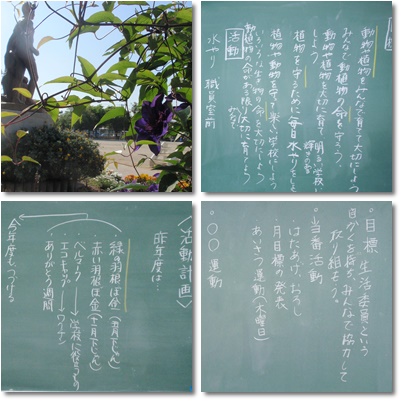 動物や植物をみんなで育てて大切にしよう
みんなで動植物の命を守ろう。
動物や植物を大切に育て明るい学校に
しよう
植物を守るために毎日水やりをしよう
植物や動物を守って楽しい学校にしよう
いろいろな生き物の命を大切にしよう
動植物の命がある限り大切に育てよう
活動
水やり 職員室前
〈活動計画〉
昨年度は…
緑の羽根ぼ金(五月下じゅん)
赤い羽根ぼ金(十月下じゅん)
ベルマーク→学校に役立つもの
エコキャップ→ワクチン
ありがとう週間
今年度もつづける
・目標 生活委員という
自かくを持ち、みんなで協力して
取り組もう。
・当番活動
はたあげ、おろし
月目標の発表
あいさつ運動(木曜日)
・〇〇運動